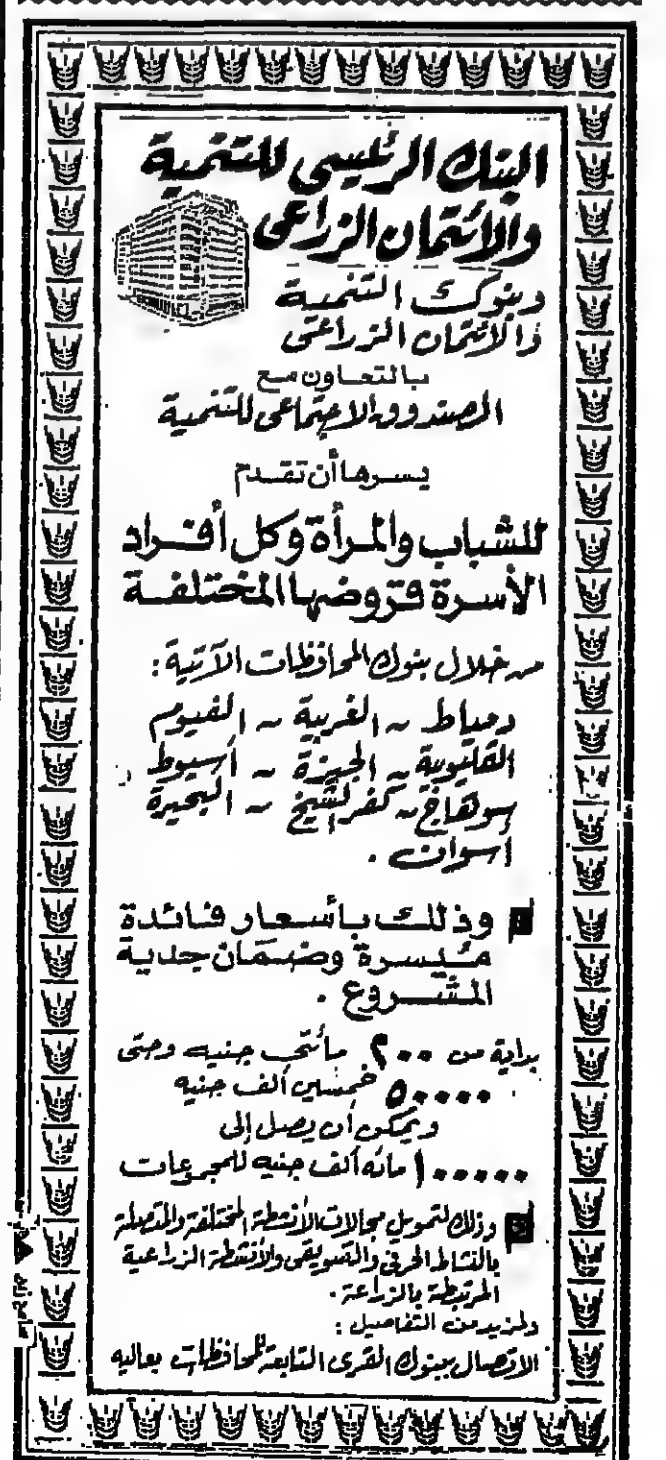 البنك الرئيسى للتنمية
والائتمان الزراعى
وبنوك التنمية
والائتمان الزراعى
بالتعاون مع
الصندوق الاجتماعى للتنمية
يسرها أن تقدم
للشباب والمرأة وكل أفراد
الأسرة قروضها المختلفة
من خلال بنوك المحافظات الآتية :
دمياط - الغربية - الفيوم
القليوبية - الجيزة - أسيوط
سوهاج - كفر الشيخ - البحيرة
أسوان .
وذلك بأسعار فائدة
ميسرة وضمان جدية
المشروع .
بداية من ٢٠٠ مائتى جنيه وحتى
٥٠٠٠٠ خمسين ألف جنيه
ويمكن أن يصل إلى
١٠٠٠٠٠ مائة ألف جنيه للمجموعات
وذلك لتمويل مجالات الأنشطة المختلفة والمتصلة
بالنشاط الحرفى والتسويقى والأنشطة الزراعية
المرتبطة بالزراعة .
ولمزيد من التفاصيل :
الاتصال ببنوك القرى التابعة للمحافظات بعاليه